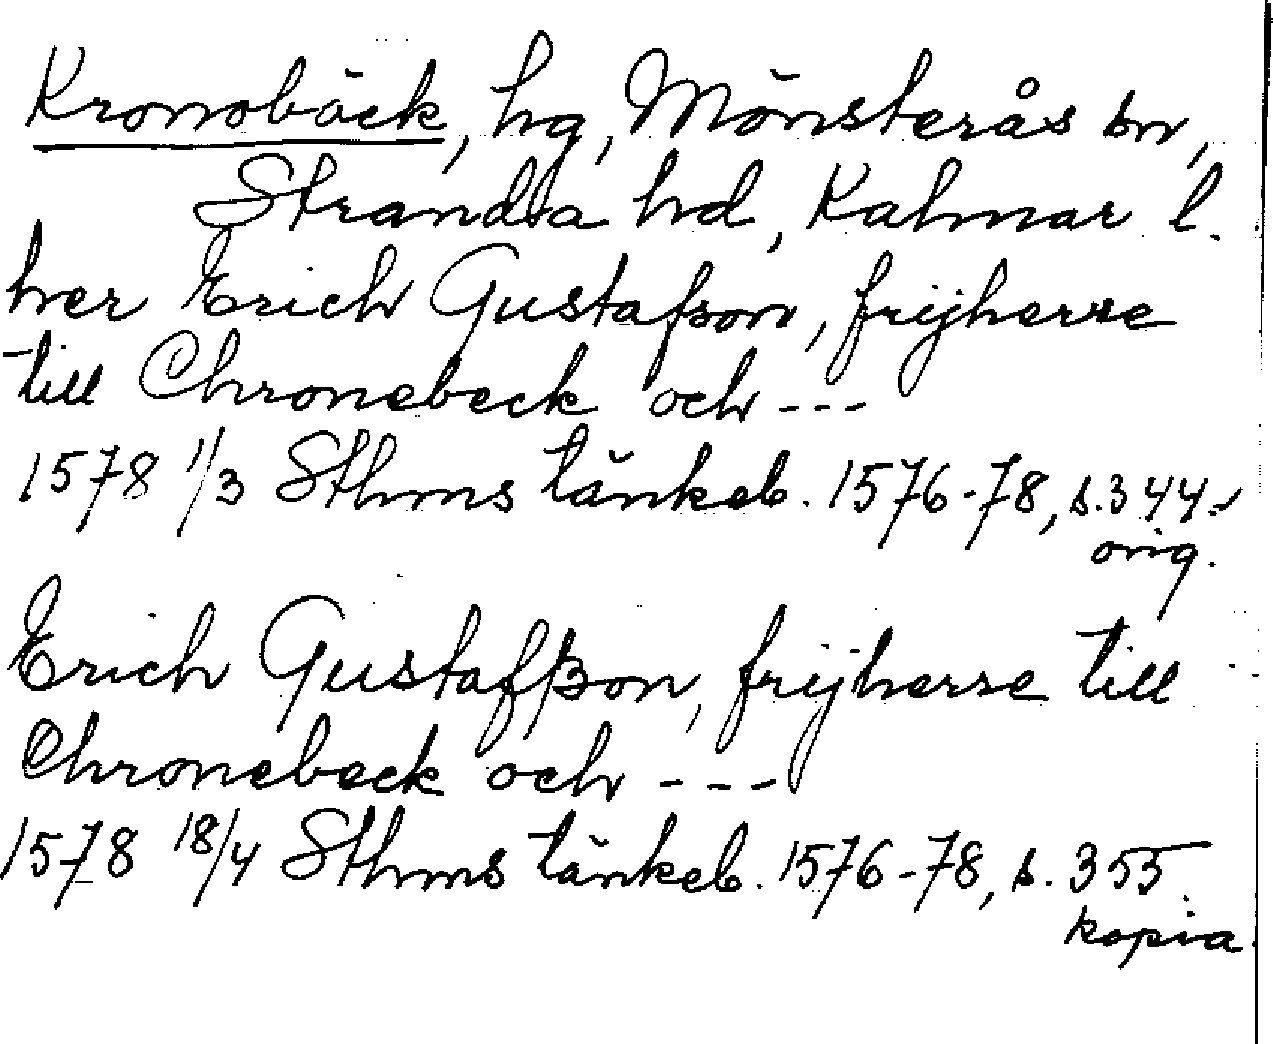 Kronobäck, hg, Mönsterås sn,
Stranda hd, Kalmar l.
her Erich Gustafson, frijherre
till Chronebeck och ---
1578 1/3 Sthms tänkeb. 1576-78, s. 344.
orig.
Erich Gustafßon, frijherre till
Chronebeck och ---
1578 18/4 Sthms tänkeb. 1576-78, s. 355.
kopia.